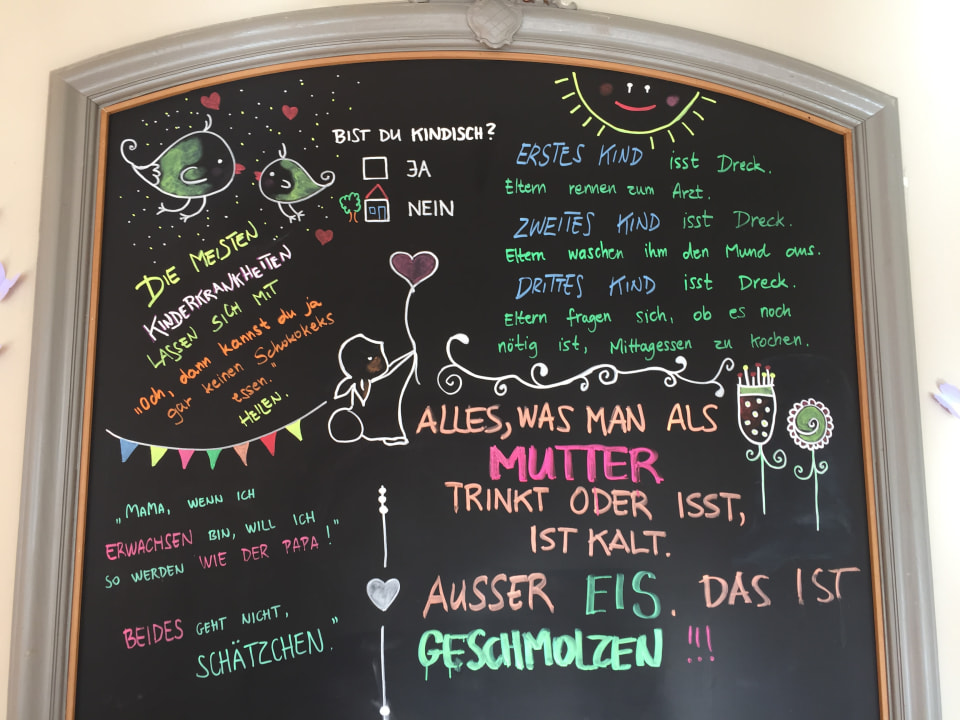 BIST DU KINDISCH?
JA
NEIN
DIE MEISTEN
KINDERKRANKHEITEN
LASSEN SICH MIT
„Och, dann kannst du ja
gar keinen Schokokeks
essen."
HEILEN.
ERSTES KIND isst Dreck.
Eltern rennen zum Arzt.
ZWEITES KIND isst Dreck.
Eltern waschen ihm den Mund aus.
DRITTES KIND isst Dreck.
Eltern fragen sich, ob es noch
nötig ist, Mittagessen zu kochen.
ALLES, WAS MAN ALS
MUTTER
TRINKT ODER ISST,
IST KALT.
AUSSER EIS. DAS IST
GESCHMOLZEN !!!
„MAMA, WENN ICH
ERWACHSEN BIN, WILL ICH
SO WERDEN WIE DER PAPA!"
BEIDES GEHT NICHT,
SCHÄTZCHEN."